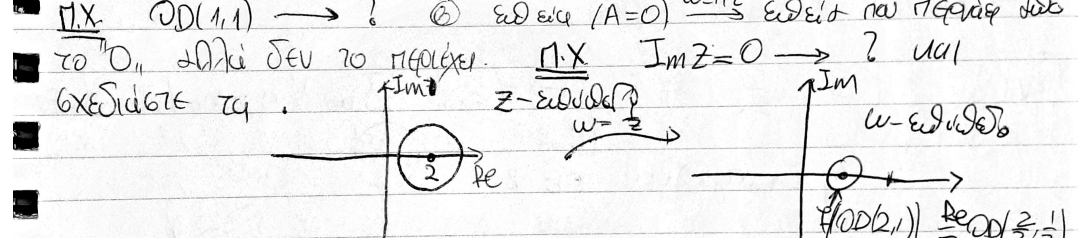 Π.Χ ∂D(1,1) → ? ⑥ ευθεία (A=0) → ευθεία που περνάει από
το "0" αλλά δεν το περιέχει. Π.Χ Im z=0 → ? και
σχεδιάστε τα.
Im
z-επίπεδο
w=1/z
Im
w-επίπεδο
2
Re
Re
f(∂D(2,1)) = ∂D(2/3,1/3)